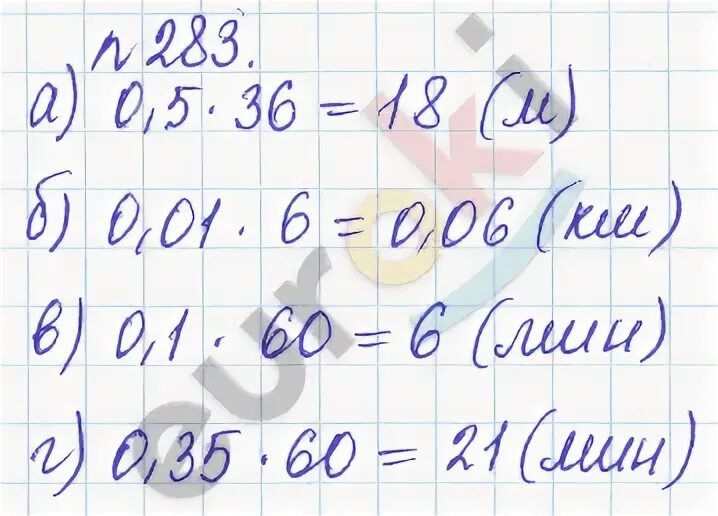 n 283.
а) 0,5 · 36 = 18 (м)
б) 0,01 · 6 = 0,06 (км)
в) 0,1 · 60 = 6 (мин)
г) 0,35 · 60 = 21 (мин)
euroki